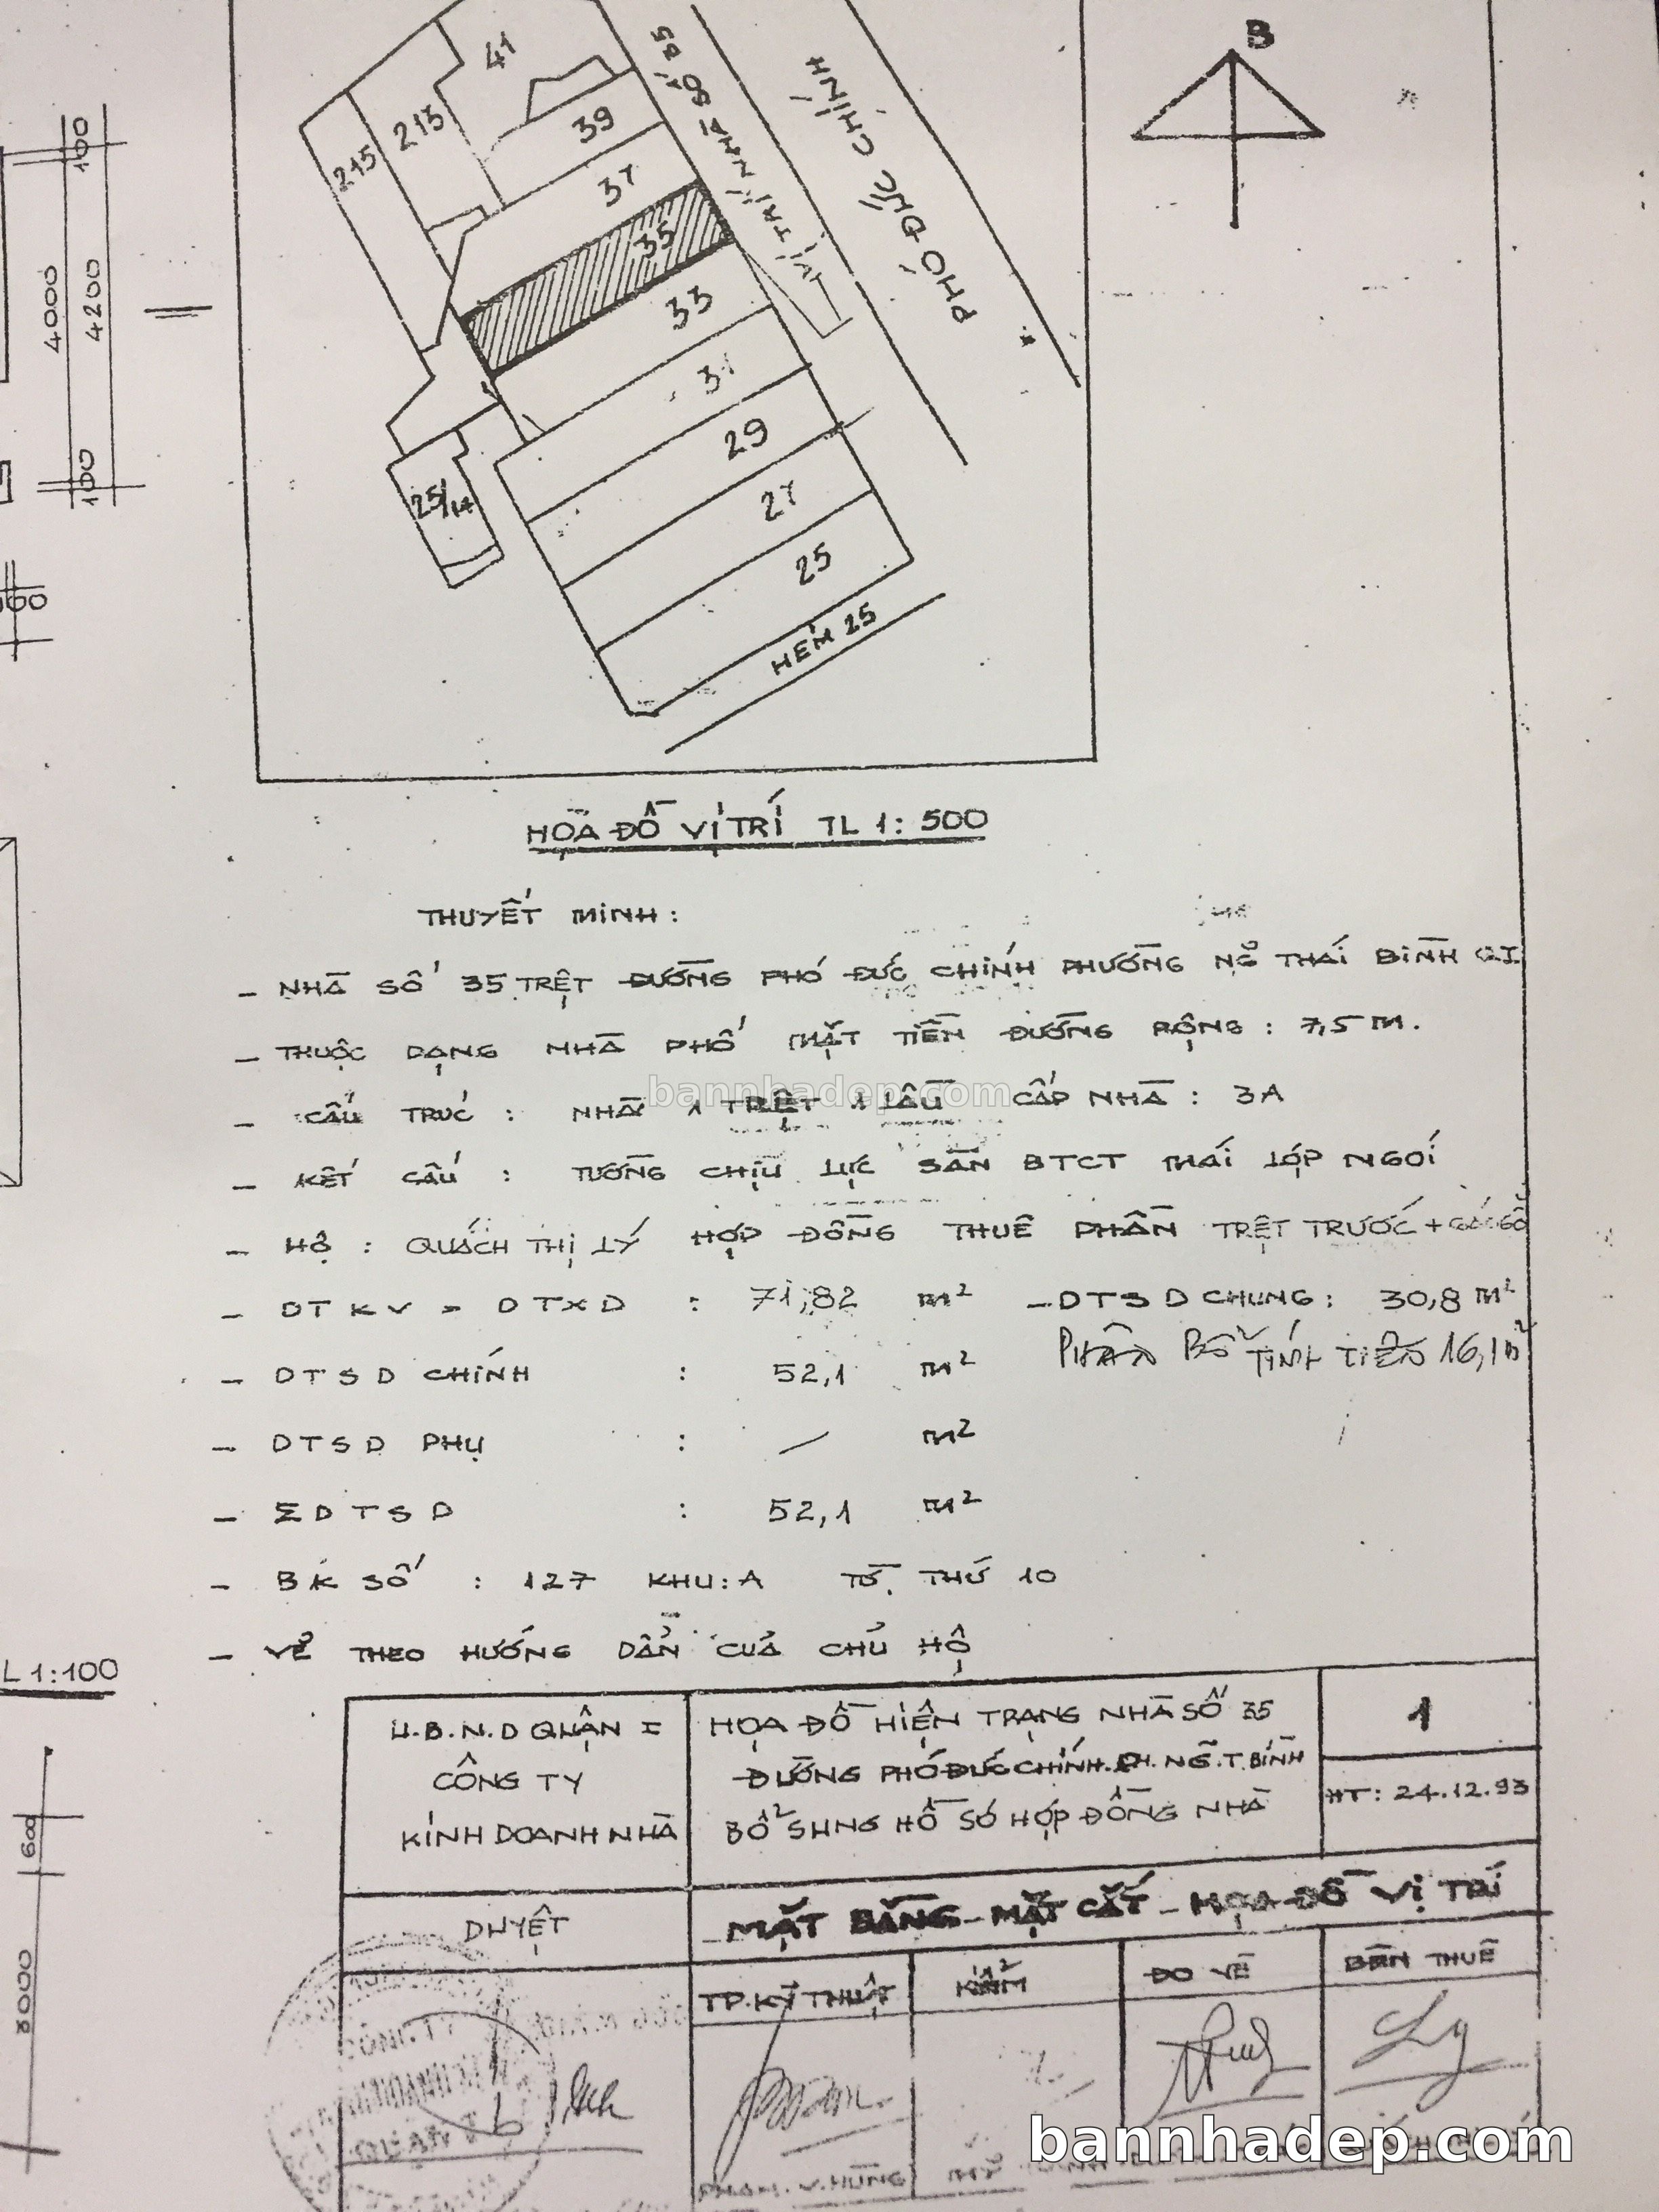 B
41
213
215
39
37
35
33
31
29
27
25
25/14
VỊ TRÍ NHÀ SỐ 35
PHÓ ĐỨC CHÍNH
HẺM 25
100
4000
4200
100
HỌA ĐỒ VỊ TRÍ TL 1: 500
THUYẾT MINH :
- NHÀ SỐ 35 TRỆT ĐƯỜNG PHÓ ĐỨC CHÍNH PHƯỜNG NG THÁI BÌNH Q I
- THUỘC DẠNG NHÀ PHỐ MẶT TIỀN ĐƯỜNG RỘNG : 7,5 m.
- CẤU TRÚC : NHÀ 1 TRỆT 1 LẦU CẤP NHÀ : 3A
- KẾT CẤU : TƯỜNG CHỊU LỰC SÀN BTCT MÁI LỢP NGÓI
- HỘ : QUÁCH THỊ LÝ HỢP ĐỒNG THUÊ PHẦN TRỆT TRƯỚC +
- DTKV = DTXD : 71,82 m² - DTSD CHUNG : 30,8 m²
PHÂN BỔ TÍNH TIỀN 16,1 m²
- DTSD CHÍNH : 52,1 m²
- DTSD PHỤ : / m²
- ΣDTSD : 52,1 m²
- BK SỐ : 127 KHU : A TỜ THỨ 10
- VẼ THEO HƯỚNG DẨN CỦA CHỦ HỘ
L 1:100
600
8000
U.B.N.D QUẬN I
CÔNG TY
KINH DOANH NHÀ
HỌA ĐỒ HIỆN TRẠNG NHÀ SỐ 35
ĐƯỜNG PHÓ ĐỨC CHÍNH. PH. NG.T.BÌNH
BỔ SUNG HỒ SƠ HỢP ĐỒNG NHÀ
1
HT : 24.12.93
DUYỆT
- MẶT BẰNG - MẶT CẮT - HỌA ĐỒ VỊ TRÍ
TP. KỸ THUẬT
KIỂM
ĐO VẼ
BÊN THUÊ
PHẠM. V. HÙNG
bannhadep.com
bannhadep.com